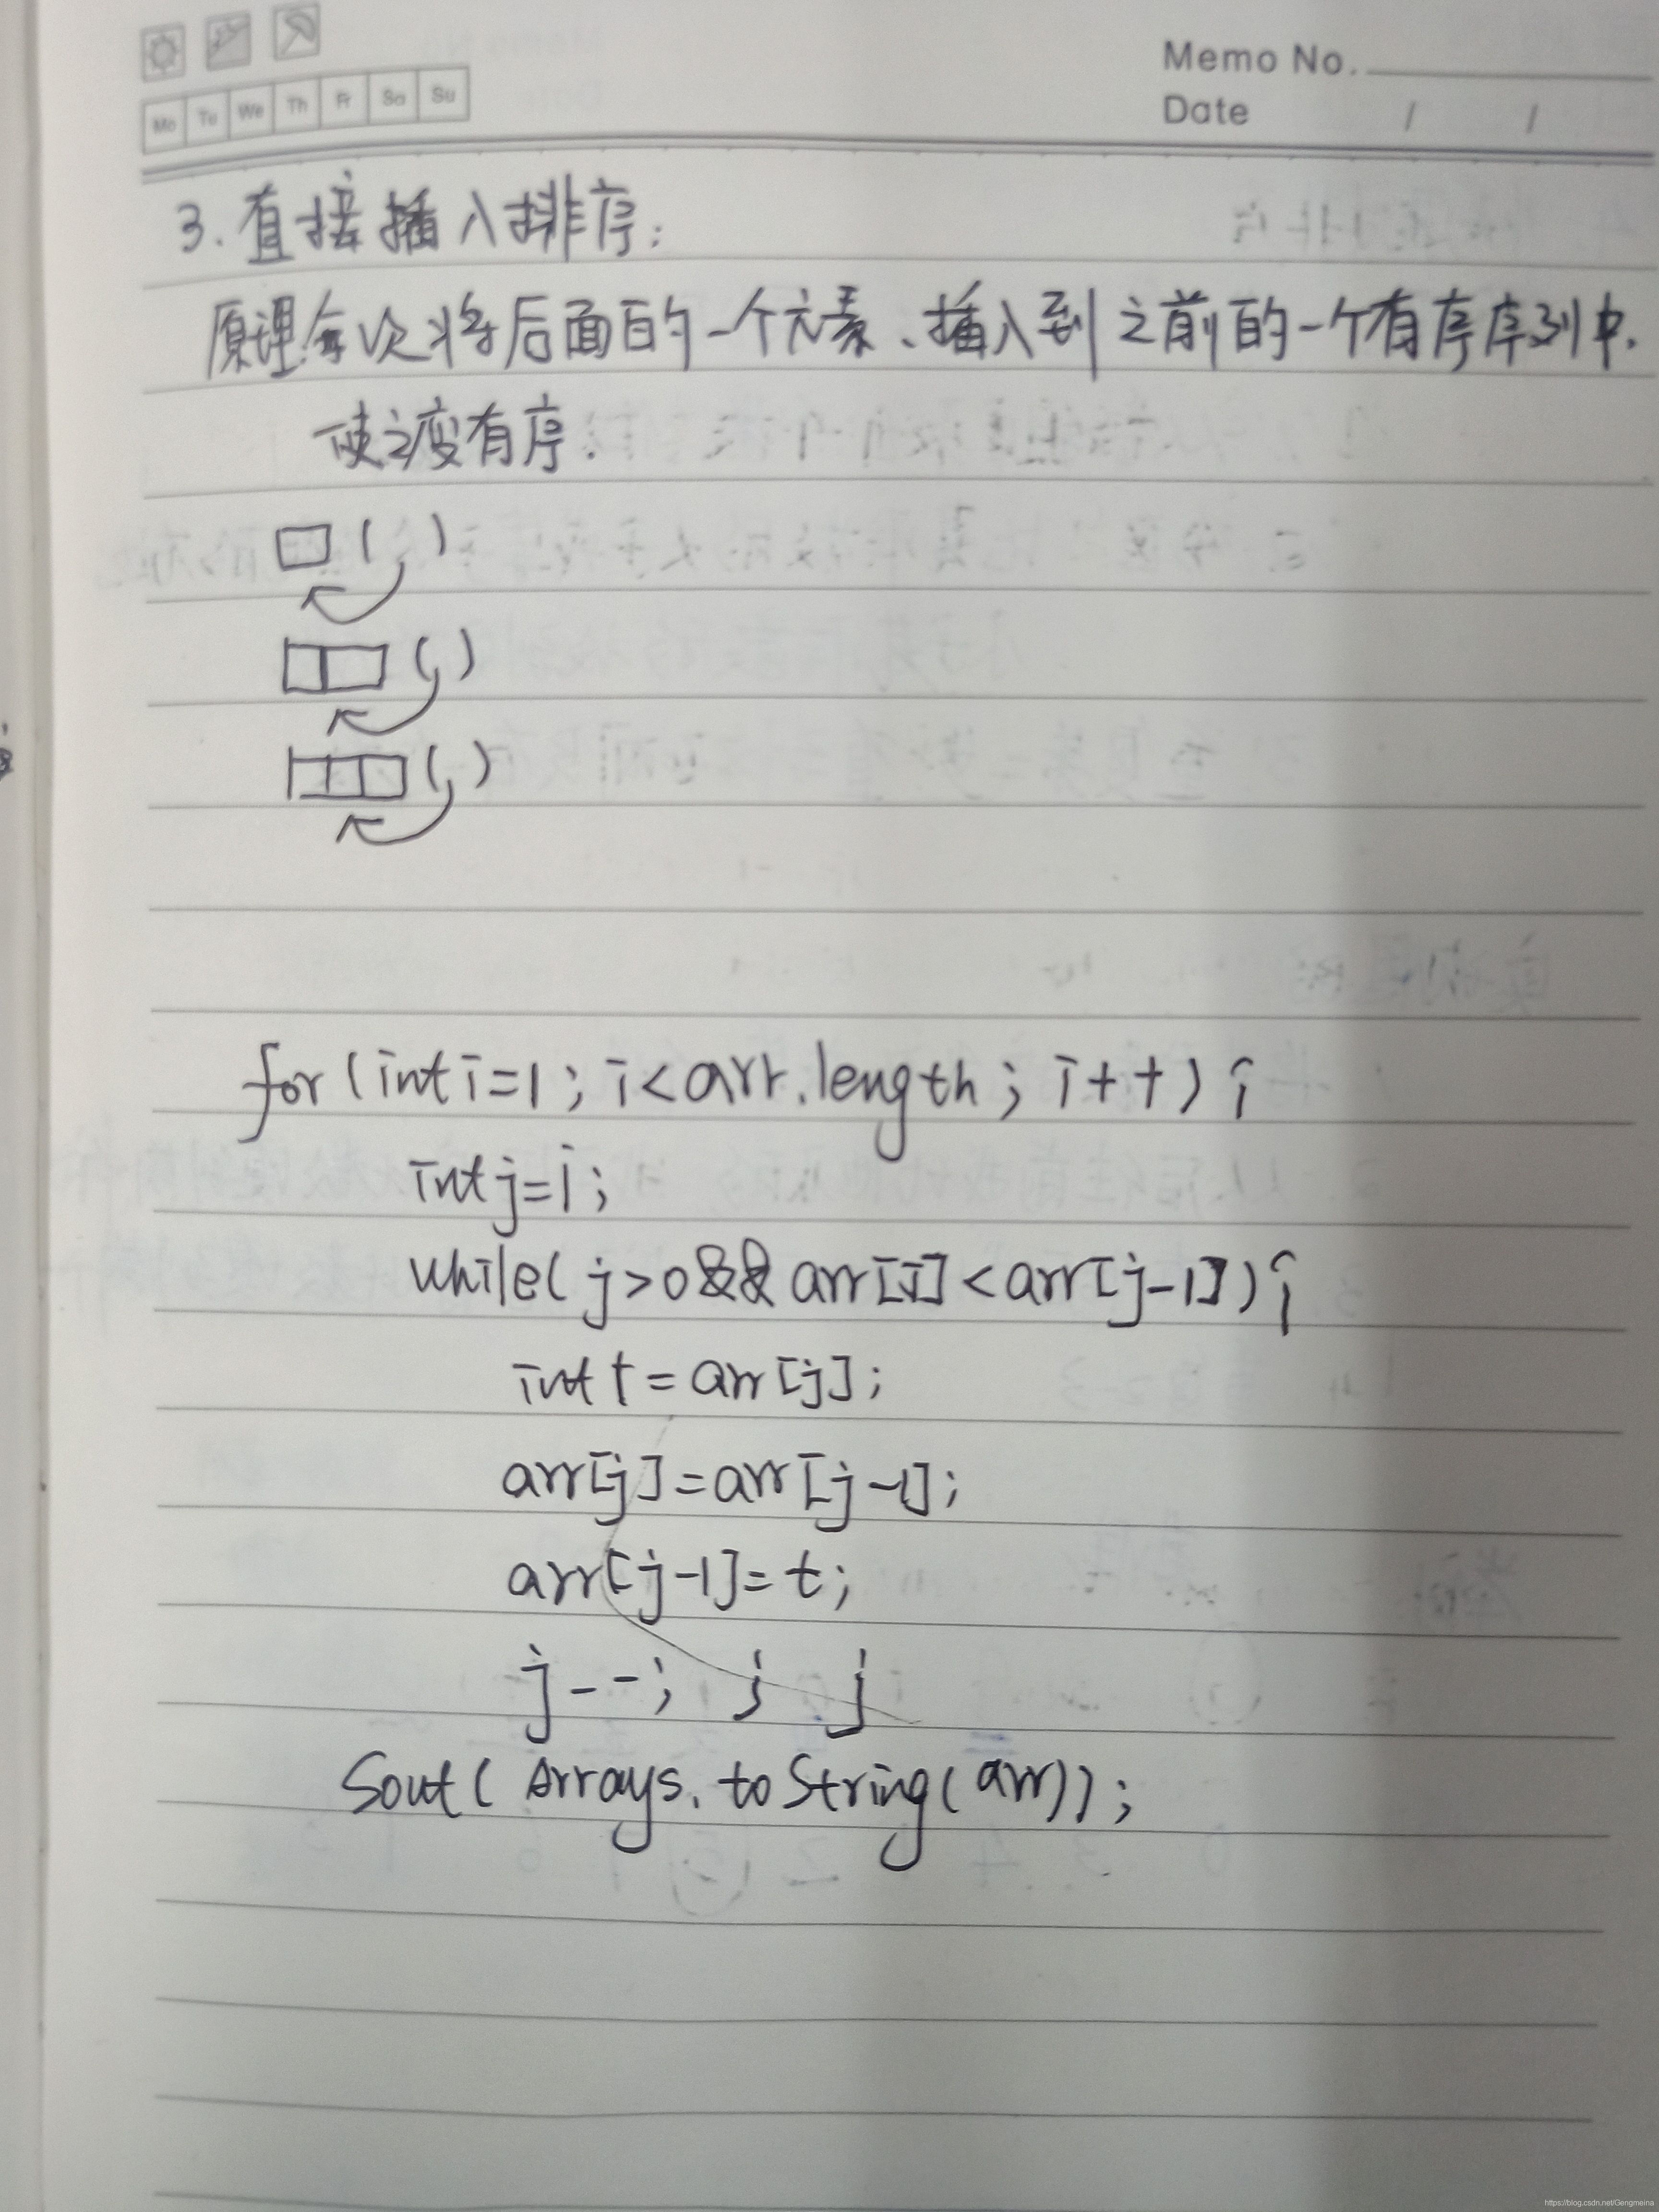 Memo No.
Mo Tu We Th Fr Sa Su
Date / /
3. 直接插入排序:
原理:每次将后面的一个元素、插入到之前的一个有序序列中.
使之变有序.
for (int i=1; i<arr.length; i++) {
int j=i;
while( j>0 && arr[j] < arr[j-1]) {
int t = arr[j];
arr[j] = arr[j-1];
arr[j-1] = t;
j--; } }
Sout( Arrays.toString(arr));
https://blog.csdn.net/Gengmeina